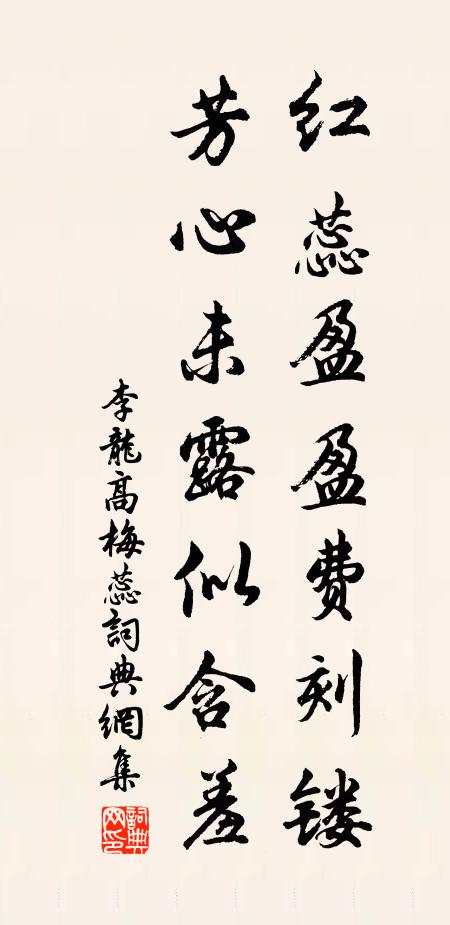 红蕊盈盈费刻镂
芳心未露似含羞
李龍高梅蕊詞典網集
詞典网印